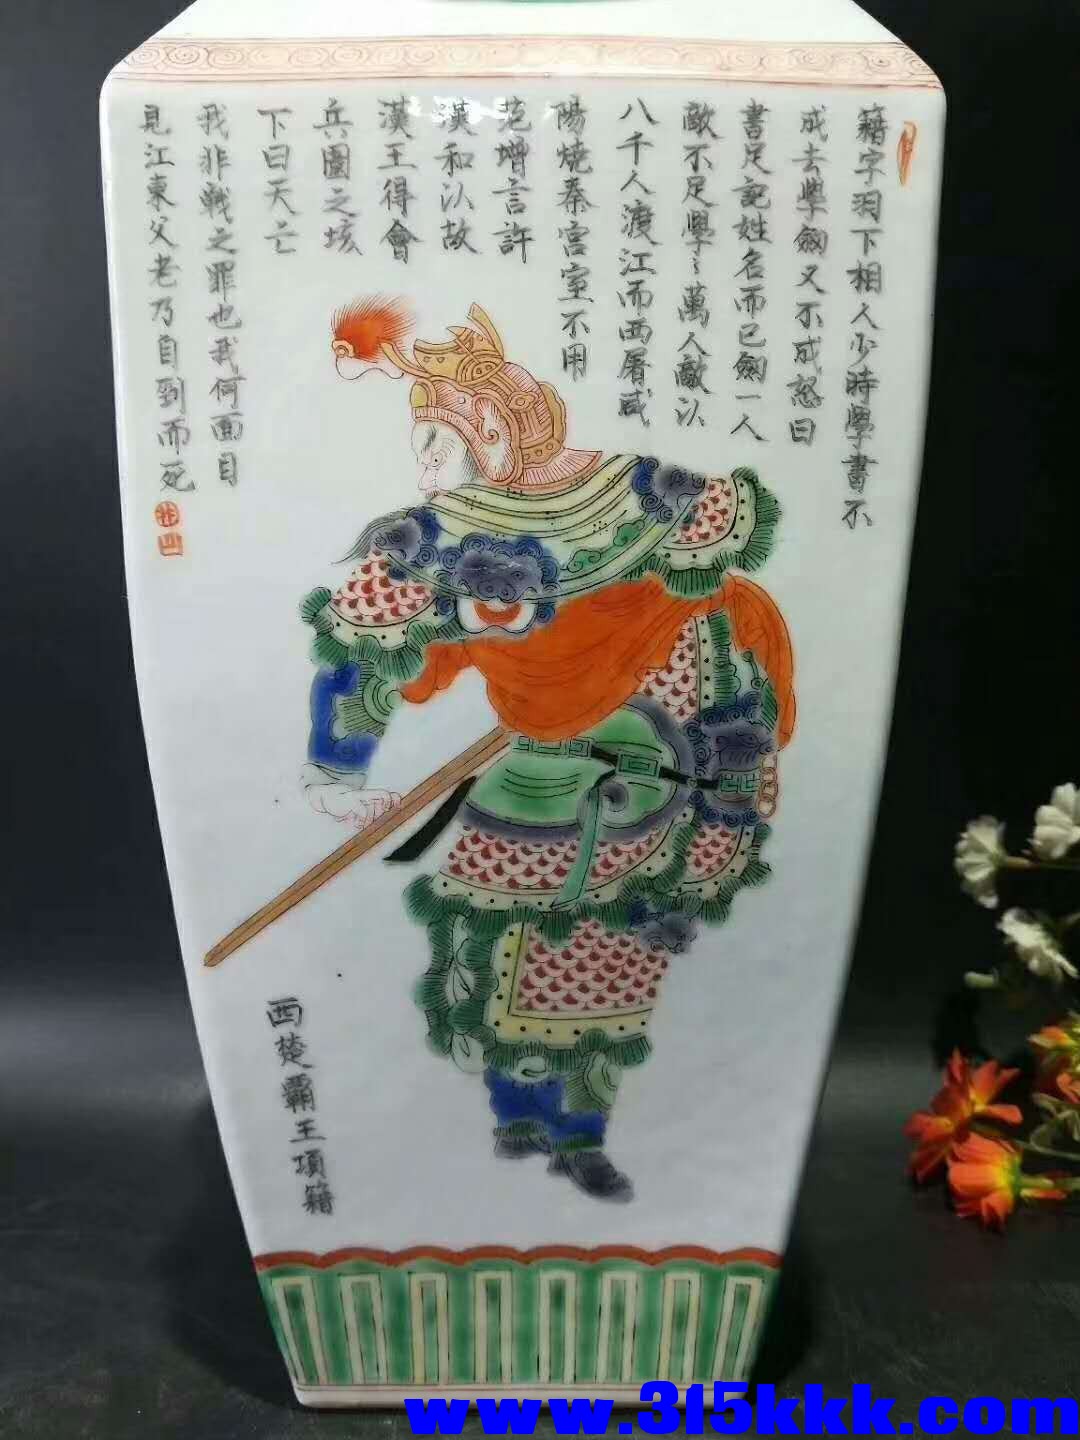 籍字羽下相人少時學書不
成去學劍又不成怒曰
書足記姓名而已劍一人
敵不足學〻萬人敵以
八千人渡江而西屠咸
陽燒秦宮室不用
范增言許
漢和以故
漢王得會
兵圍之垓
下曰天亡
我非戰之罪也我何面目
見江東父老乃自刭而死
西楚霸王項籍
www.315kkk.com